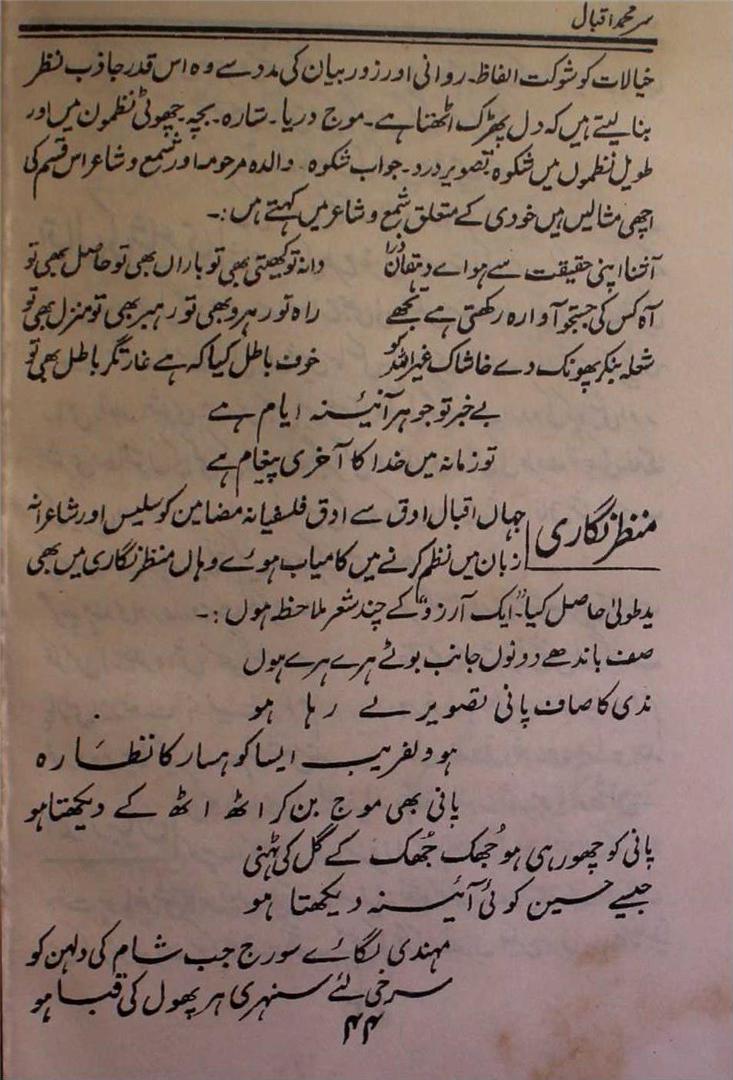 سر محمد اقبال
خیالات کو شوکت الفاظ۔ روانی اور زور بیان کی مدد سے وہ اس قدر جاذب نظر
بنا لیتے ہیں کہ دل پھڑک اٹھتا ہے۔ موج دریا۔ ستارہ۔ بچہ۔ چھوٹی نظموں میں اور
طویل نظموں میں شکوہ تصویر درد۔ جواب شکوہ۔ والدہ مرحومہ اور شمع و شاعر اس قسم کی
اچھی مثالیں ہیں خودی کے متعلق شمع و شاعر میں کہتے ہیں :۔
آشنا اپنی حقیقت سے ہو اے دہقان ذرا دانہ تو کھیتی بھی تو باراں بھی تو حاصل بھی تو
آہ کس کی جستجو آوارہ رکھتی ہے تجھے راہ تو رہرو بھی تو رہبر بھی تو منزل بھی تو
شعلہ بنکر پھونک دے خاشاک غیر اللہ کو خوف باطل کیا کہ ہے غارتگر باطل بھی تو
بے خبر تو جوہر آئینہ ایام ہے
تو زمانہ میں خدا کا آخری پیغام ہے
منظر نگاری جہاں اقبال ادق سے ادق فلسفیانہ مضامین کو سلیس اور شاعرانہ
زبان میں نظم کرنے میں کامیاب ہوئے وہاں منظر نگاری میں بھی
ید طولیٰ حاصل کیا۔ "ایک آرزو" کے چند شعر ملاحظہ ہوں :۔
صف باندھے دونوں جانب بوٹے ہرے ہرے ہوں
ندی کا صاف پانی تصویر لے رہا ہو
ہو دلفریب ایسا کوہسار کا نظارہ
پانی بھی موج بن کر اٹھ اٹھ کے دیکھتا ہو
پانی کو چھو رہی ہو جُھک جُھک کے گل کی ٹہنی
جیسے حسین کوئی آئینہ دیکھتا ہو
مہندی لگائے سورج جب شام کی دلہن کو
سرخی لئے سنہری ہر پھول کی قبا ہو
۴۴